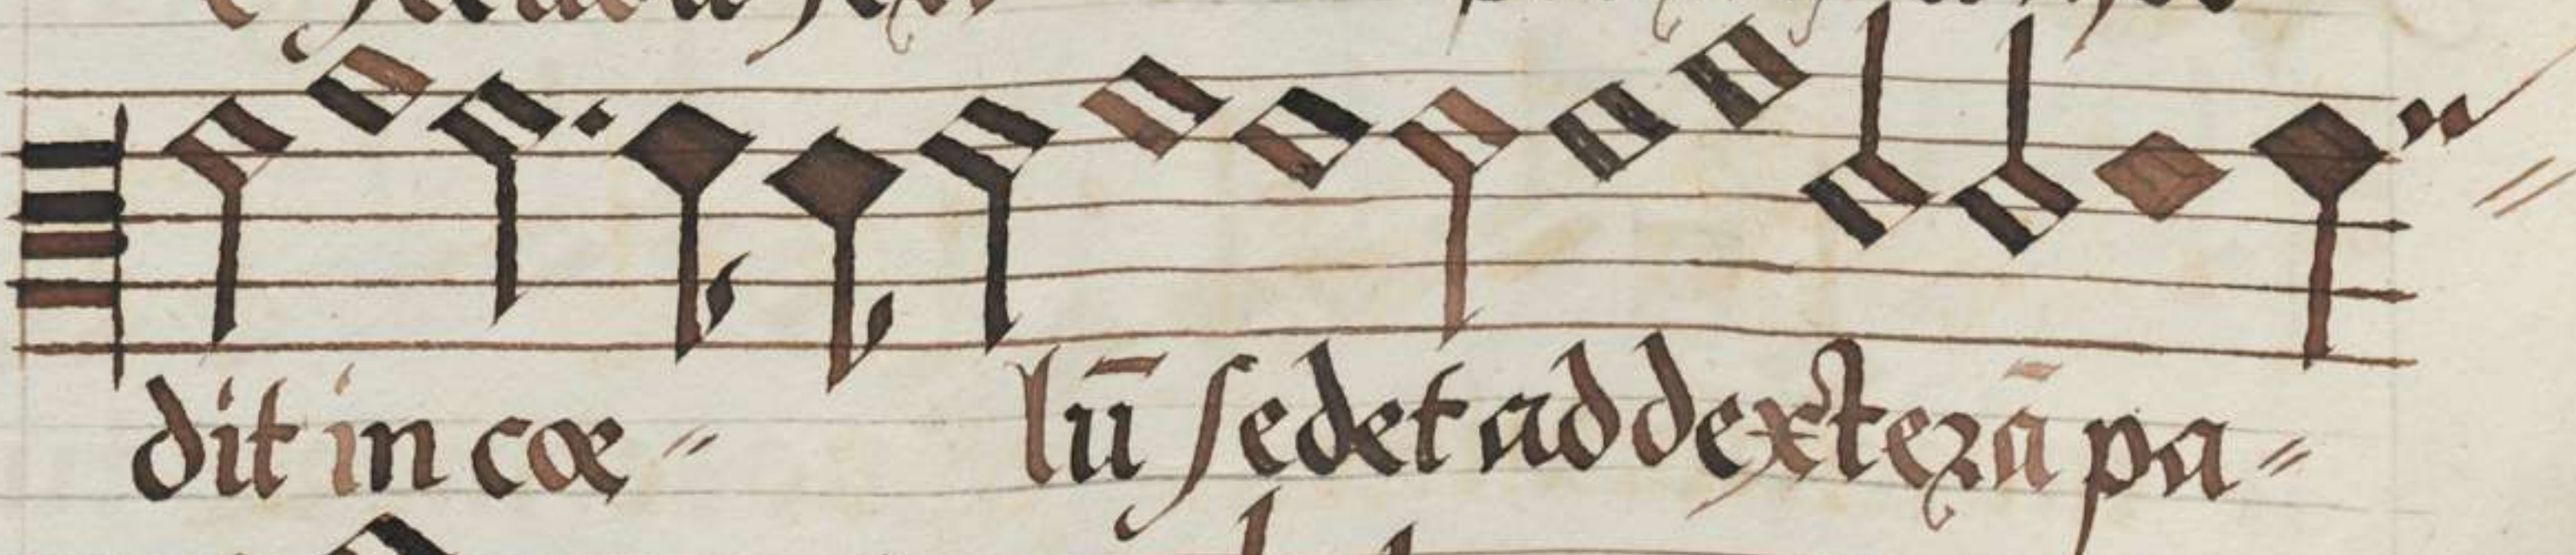 dit in cœ〃 lū ſedet ad dexterā pa〃